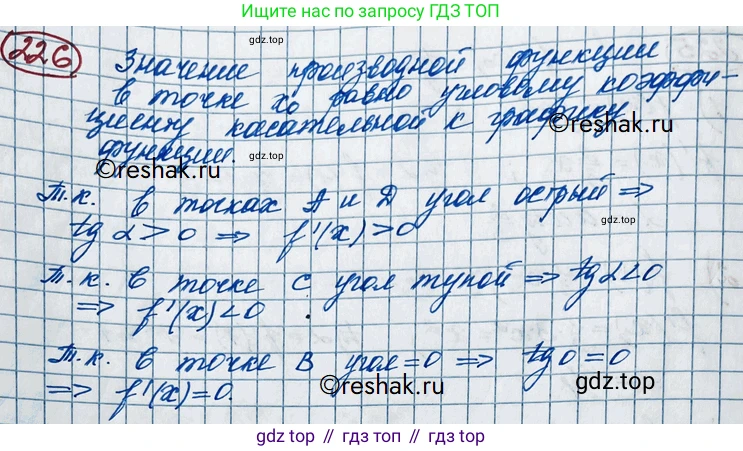 Ищите нас по запросу ГДЗ ТОП
226
gdz.top
Значение производной функции
в точке x₀ равно угловому коэффи-
циенту касательной к графику
функции.
©reshak.ru
©reshak.ru
Т.к. в точках A и D угол острый ⇒
gdz.top
tg α > 0 ⇒ f'(x) > 0
Т.к. в точке C угол тупой ⇒ tg α < 0
⇒ f'(x) < 0
gdz.top
©reshak.ru
Т.к. в точке B угол = 0 ⇒ tg 0 = 0
⇒ f'(x) = 0.
©reshak.ru
gdz.top
gdz.top // гдз топ // gdz.top